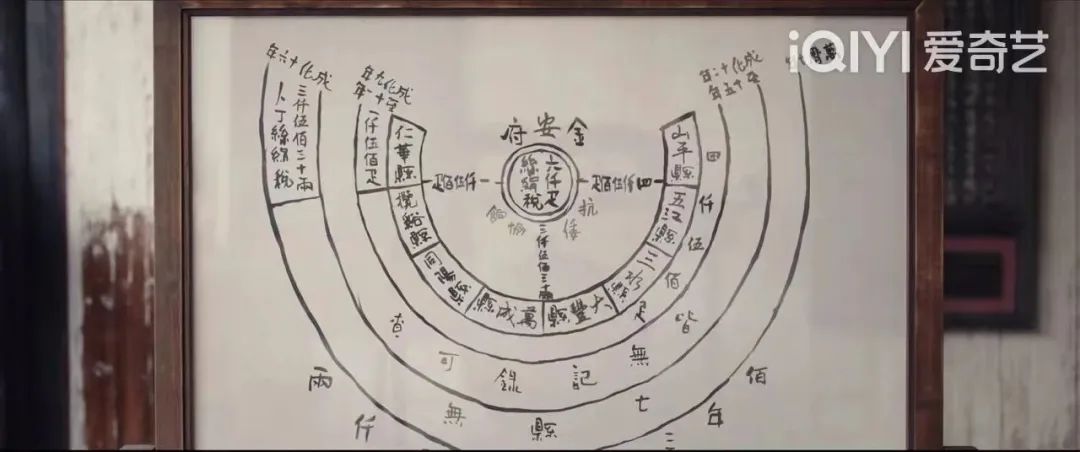 iQIYI 爱奇艺
成化十六年
三仟伍佰三十兩
人丁絲絹税
成化九
年至十一年
一仟伍佰疋
成化十二年
至十五年
金安府
六仟疋
絲絹税
仁華縣
攬谿縣
同陽縣
萬成縣
大豐縣
三水縣
五江縣
山平縣
一仟伍佰疋
四仟伍佰疋
抗倭
餉
三仟伍佰三十兩
四仟伍佰疋
皆無記錄可查
七縣無
佰年
三
兩仟